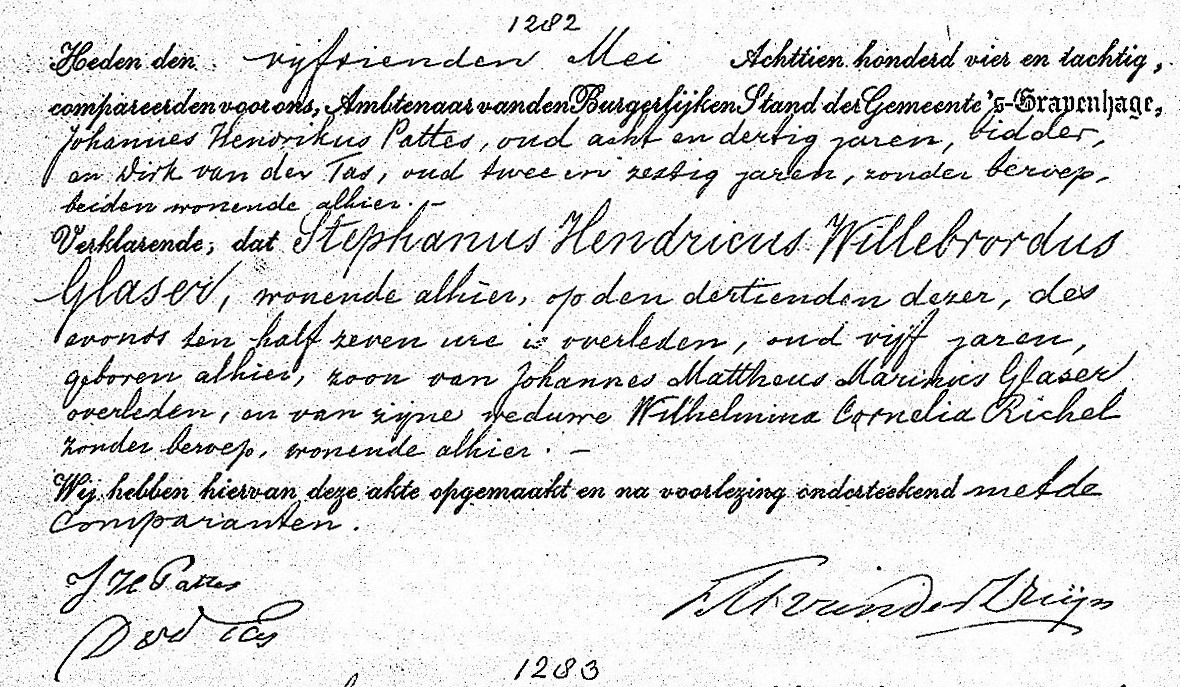 1282
Heden den vijftienden Mei Achttien honderd vier en tachtig,
compareerden voor ons, Ambtenaar van den Burgerlijken Stand der Gemeente 's-Gravenhage,
Johannes Hendrikus Pattes, oud acht en dertig jaren, bidder,
en Dirk van der Tas, oud twee en zestig jaren, zonder beroep,
beiden wonende alhier. –
Verklarende, dat Stephanus Hendricus Willebrordus
Glaser, wonende alhier, op den dertienden dezer, des
avonds ten half zeven ure is overleden, oud vijf jaren,
geboren alhier, zoon van Johannes Mattheus Marinus Glaser
overleden, en van zijne weduwe Wilhelmina Cornelia Richel
zonder beroep, wonende alhier. –
Wij hebben hiervan deze akte opgemaakt en na voorlezing onderteekend met de
Comparanten.
J H Pattes
D vd Tas
van der
1283